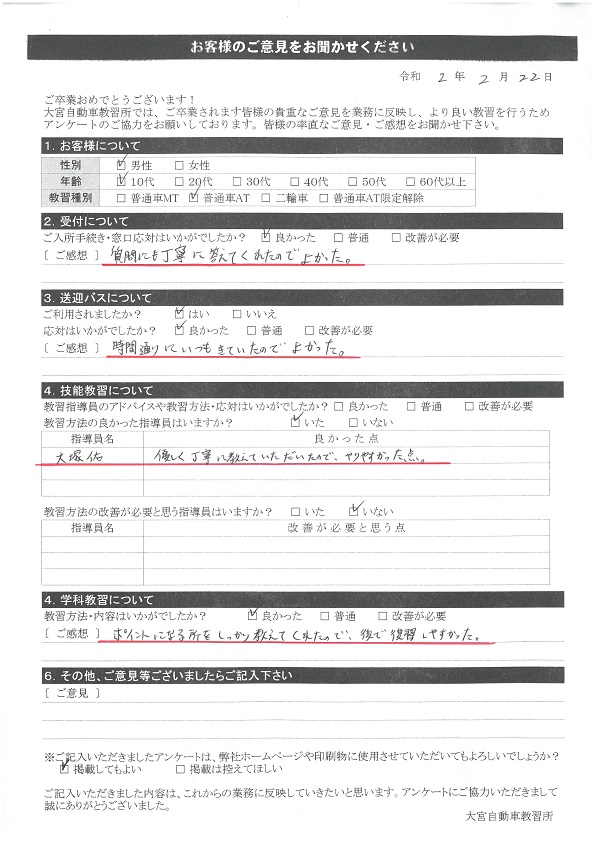 お客様のご意見をお聞かせください
令和 2 年 2 月 22 日
ご卒業おめでとうございます！
大宮自動車教習所では、ご卒業されます皆様の貴重なご意見を業務に反映し、より良い教習を行うため
アンケートのご協力をお願いしております。皆様の率直なご意見・ご感想をお聞かせ下さい。
1. お客様について
性別 ☑ 男性 □ 女性
年齢 ☑ 10代 □ 20代 □ 30代 □ 40代 □ 50代 □ 60代以上
教習種別 □ 普通車MT ☑ 普通車AT □ 二輪車 □ 普通車AT限定解除
2. 受付について
ご入所手続き・窓口応対はいかがでしたか？ ☑ 良かった □ 普通 □ 改善が必要
〔 ご感想 〕 質問にも丁寧に答えてくれたのでよかった。
3. 送迎バスについて
ご利用されましたか？ ☑ はい □ いいえ
応対はいかがでしたか？ ☑ 良かった □ 普通 □ 改善が必要
〔 ご感想 〕 時間通りにいつもきていたのでよかった。
4. 技能教習について
教習指導員のアドバイスや教習方法・応対はいかがでしたか？ □ 良かった □ 普通 □ 改善が必要
教習方法の良かった指導員はいますか？ ☑ いた □ いない
指導員名 良かった点
大塚佑 優しく丁寧に教えていただいたので、やりやすかった点。
教習方法の改善が必要と思う指導員はいますか？ □ いた ☑ いない
指導員名 改善が必要と思う点
4. 学科教習について
教習方法・内容はいかがでしたか？ ☑ 良かった □ 普通 □ 改善が必要
〔 ご感想 〕 ポイントになる所をしっかり教えてくれたので、後で復習しやすかった。
6. その他、ご意見等ございましたらご記入下さい
〔 ご意見 〕
※ご記入いただきましたアンケートは、弊社ホームページや印刷物に使用させていただいてもよろしいでしょうか？
☑ 掲載してもよい □ 掲載は控えてほしい
ご記入いただきました内容は、これからの業務に反映していきたいと思います。アンケートにご協力いただきまして
誠にありがとうございました。
大宮自動車教習所